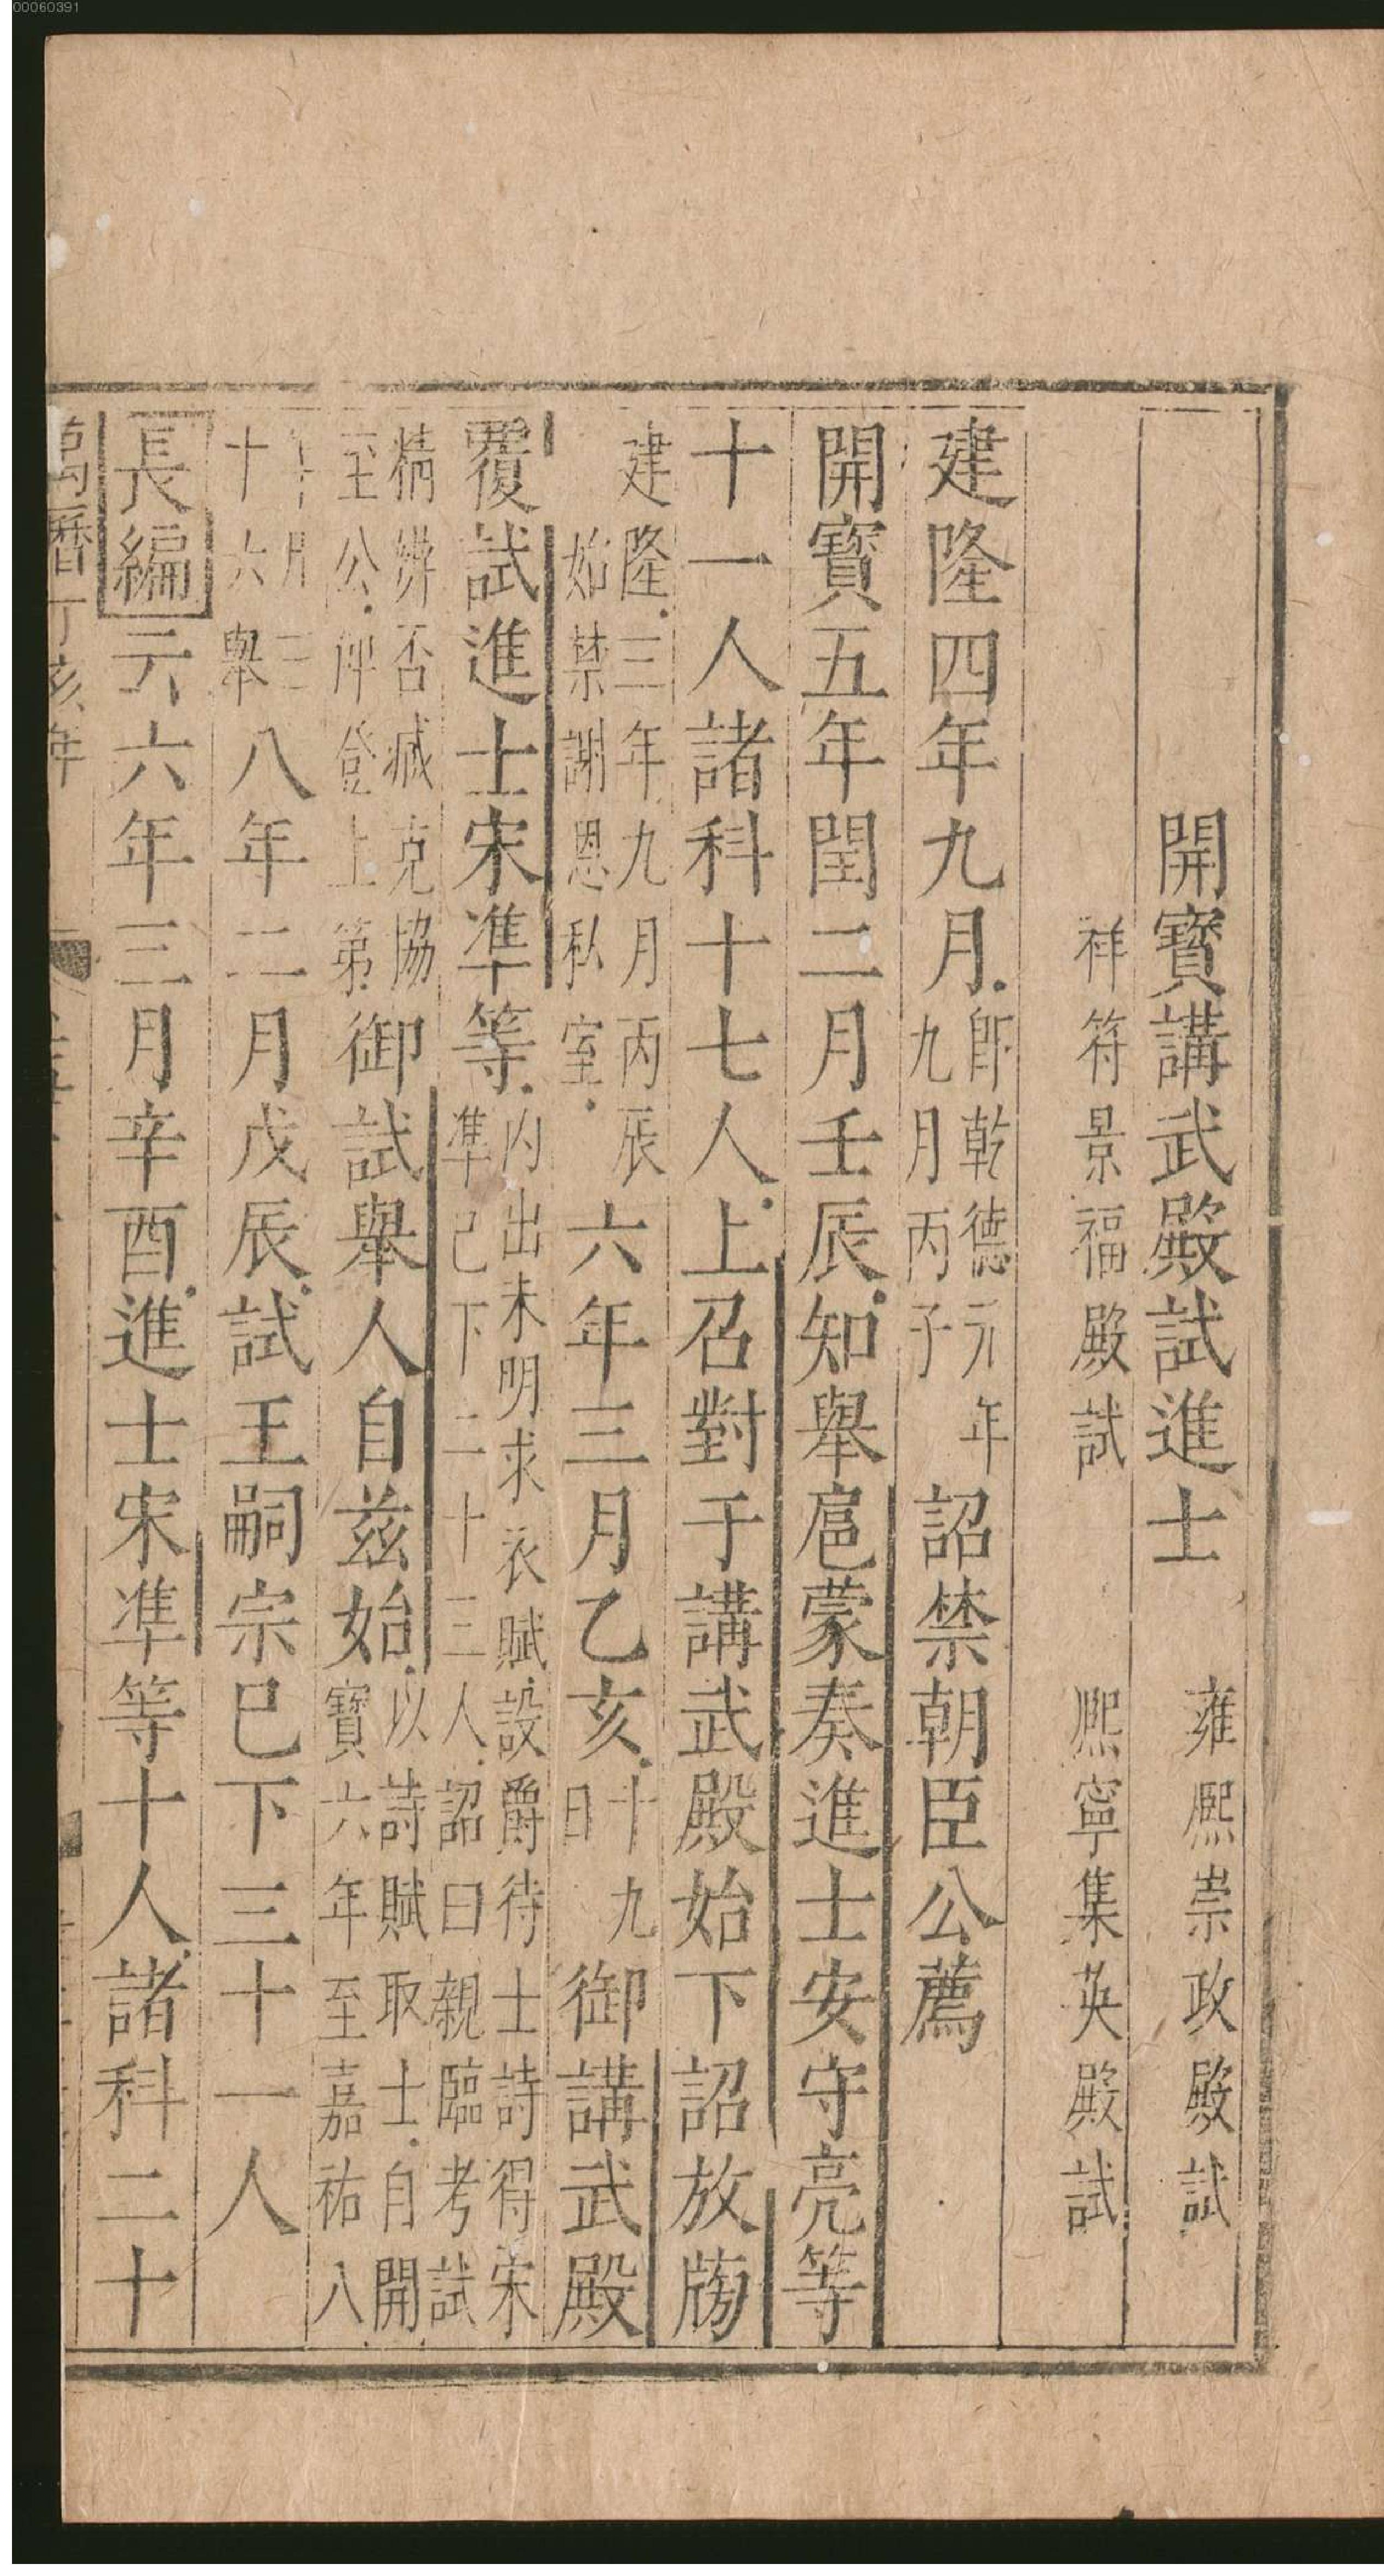 00060391
開寶講武殿試進士 雍熙崇政殿試
祥符景福殿試 熙寧集英殿試
建隆四年九月即乾德元年九月丙子詔禁朝臣公薦
開寶五年閏二月壬辰知舉扈蒙奏進士安守亮等
十一人諸科十七人上召對于講武殿始下詔放牓
建隆三年九月丙辰始禁謝恩私室六年三月乙亥十九日御講武殿
覆試進士宋準等內出未明求衣賦設爵待士詩得宋準已下二十三人詔曰親臨考試
精辨否臧克協至公俾登上第御試舉人自茲始以詩賦取士自開寶六年至嘉祐八
年三月十六舉八年二月戊辰試王嗣宗已下三十一人
長編云六年三月辛酉進士宋準等十人諸科二十
萬曆丁亥年